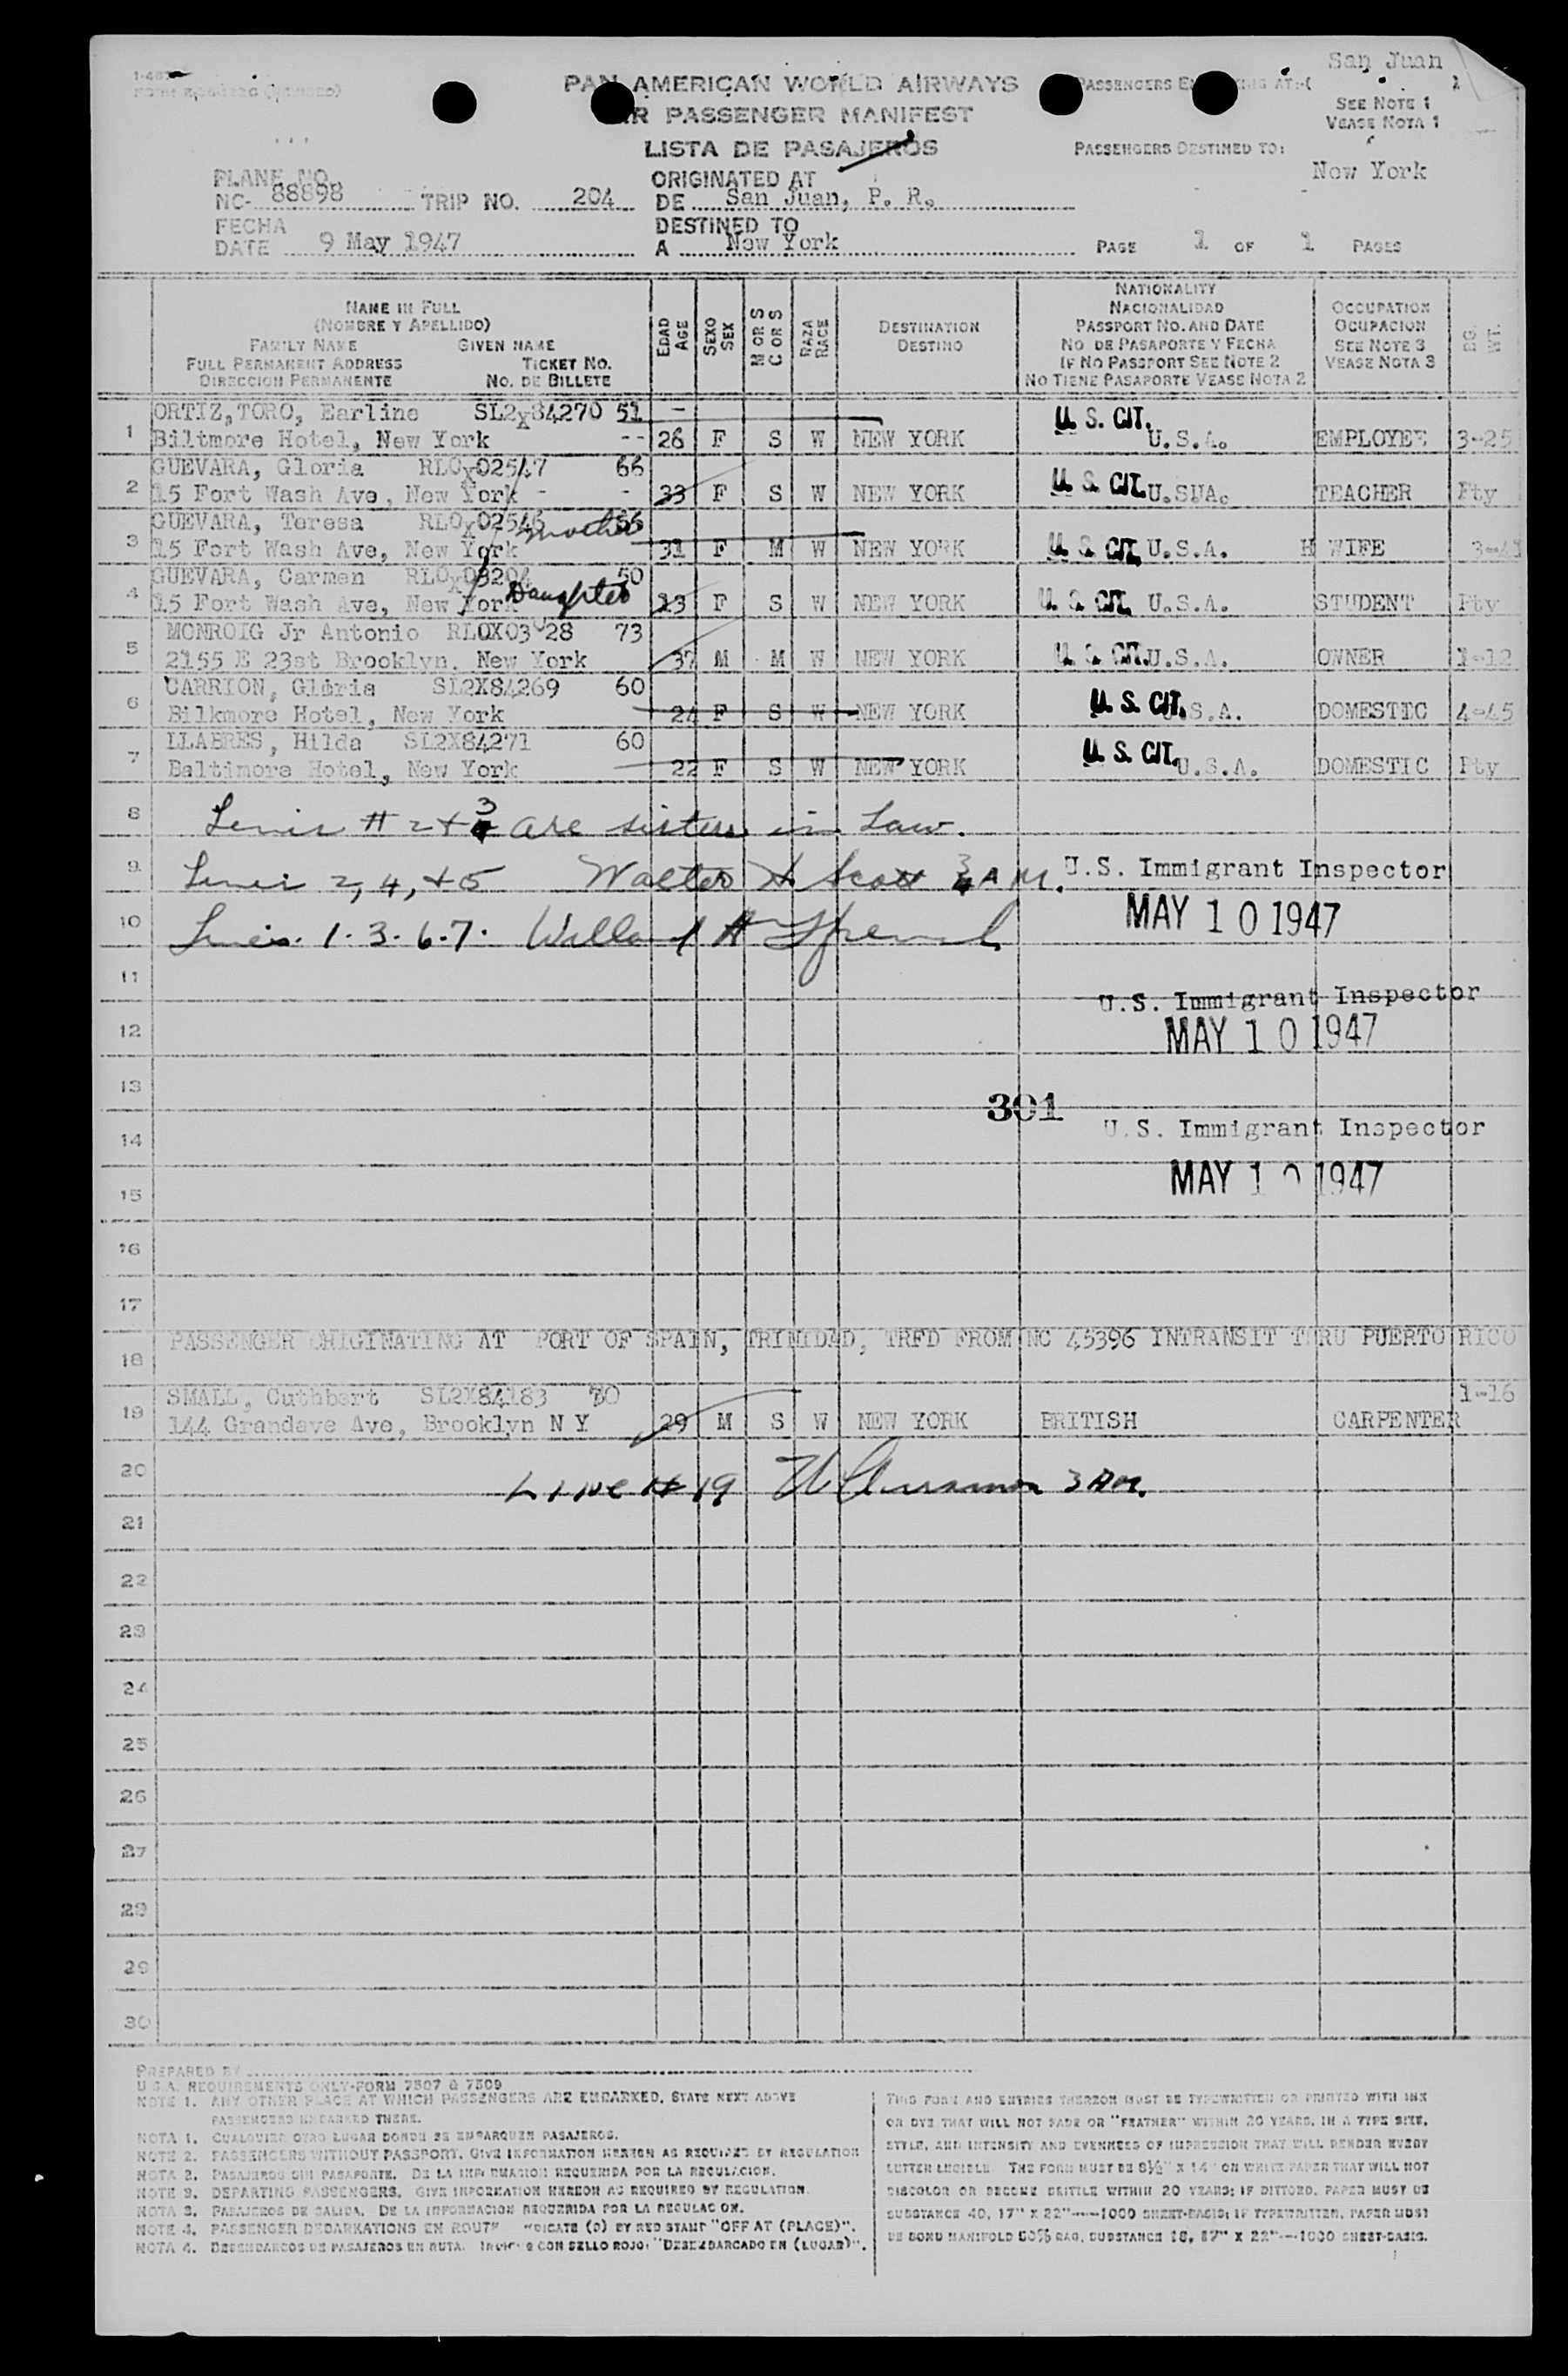 San Juan
PAN AMERICAN WORLD AIRWAYS
PASSENGER MANIFEST
LISTA DE PASAJEROS
SEE NOTE 1
VEASE NOTA 1
PASSENGERS DESTINED TO:
New York
PLANE NO.
NC- 88898 TRIP NO. 204
ORIGINATED AT
DE San Juan, P. R.
FECHA
DATE 9 May 1947
DESTINED TO
A New York
PAGE 1 OF 1 PAGES
NAME IN FULL
(NOMBRE Y APELLIDO)
FAMILY NAME GIVEN NAME
FULL PERMANENT ADDRESS TICKET NO.
DIRECCION PERMANENTE NO. DE BILLETE
EDAD
AGE
SEXO
SEX
M OR S
C OR S
RAZA
RACE
DESTINATION
DESTINO
NATIONALITY
NACIONALIDAD
PASSPORT NO. AND DATE
NO. DE PASAPORTE Y FECHA
IF NO PASSPORT SEE NOTE 2
NO TIENE PASAPORTE VEASE NOTA 2
OCCUPATION
OCUPACION
SEE NOTE 3
VEASE NOTA 3
BG.
WT.
ORTIZ,TORO, Earline SL2X84270 51 - U. S. CIT.
1 Biltmore Hotel, New York -- 26 F S W NEW YORK U.S.A. EMPLOYEE 3-25
GUEVARA, Gloria RLOX02547 66
2 15 Fort Wash Ave, New York - - 33 F S W NEW YORK U. S. CIT. U.SUA. TEACHER Pty
GUEVARA, Teresa RLOX02546 mother 56
3 15 Fort Wash Ave, New York 31 F M W NEW YORK U. S. CIT. U.S.A. H WIFE 3-41
GUEVARA, Carmen RLOX03204 Daughter 50
4 15 Fort Wash Ave, New York 13 F S W NEW YORK U. S. CIT. U.S.A. STUDENT Pty
MONROIG Jr Antonio RLOX03 28 73
5 2155 E 23st Brooklyn. New York 37 M M W NEW YORK U. S. CIT. U.S.A. OWNER 1-12
CARRION, Gloria SL2X84269 60
6 Bilkmore Hotel, New York 24 F S W NEW YORK U. S. CIT. S.A. DOMESTIC 4-45
LLABRES, Hilda SL2X84271 60
7 Baltimore Hotel, New York 22 F S W NEW YORK U. S. CIT. U.S.A. DOMESTIC Pty
8 Lines # 2 + 3 are sisters in Law.
9 Lines 2, 4, + 5 Walter H. Scott 3 AM. U.S. Immigrant Inspector
MAY 10 1947
10 Lines. 1. 3. 6. 7. Willard H
11
U.S. Immigrant Inspector
12 MAY 10 1947
13
301
14 U.S. Immigrant Inspector
15 MAY 10 1947
16
17
PASSENGER ORIGINATING AT PORT OF SPAIN, TRINIDAD, TRFD FROM NC 45396 INTRANSIT THRU PUERTO RICO
18
SMALL, Cuthbert SL2X84183 80 1-16
19 144 Grandave Ave, Brooklyn N Y 29 M S W NEW YORK BRITISH CARPENTER
20 LINE # 19 3 AM.
21
22
23
24
25
26
27
28
29
30
PREPARED BY
U.S.A. REQUIREMENTS ONLY-FORM 7507 & 7509
NOTE 1. ANY OTHER PLACE AT WHICH PASSENGERS ARE EMBARKED, STATE NEXT ABOVE
PASSENGERS EMBARKED THERE.
NOTA 1. CUALQUIER OTRO LUGAR DONDE SE EMBARQUEN PASAJEROS.
NOTE 2. PASSENGERS WITHOUT PASSPORT, GIVE INFORMATION HEREON AS REQUIRED BY REGULATION
NOTA 2. PASAJEROS SIN PASAPORTE. DE LA INFORMACION REQUERIDA POR LA REGULACION.
NOTE 3. DEPARTING PASSENGERS, GIVE INFORMATION HEREON AS REQUIRED BY REGULATION.
NOTA 3. PASAJEROS DE SALIDA. DE LA INFORMACION REQUERIDA POR LA REGULACION.
NOTE 4. PASSENGER DEBARKATIONS EN ROUTE INDICATE (D) BY RED STAMP "OFF AT (PLACE)".
NOTA 4. DESEMBARCOS DE PASAJEROS EN RUTA. INDIQUE CON SELLO ROJO: "DESEMBARCADO EN (LUGAR)".
THIS FORM AND ENTRIES THEREON MUST BE TYPEWRITTEN OR PRINTED WITH INK
OR DYE THAT WILL NOT FADE OR "FEATHER" WITHIN 20 YEARS, IN A TYPE SIZE,
STYLE, AND INTENSITY AND EVENNESS OF IMPRESSION THAT WILL RENDER EVERY
LETTER LEGIBLE. THE FORM MUST BE 8½" X 14" ON WHITE PAPER THAT WILL NOT
DISCOLOR OR BECOME BRITTLE WITHIN 20 YEARS; IF DITTOED, PAPER MUST BE
SUBSTANCE 40, 17" X 22"---1000 SHEET-BASIS; IF TYPEWRITTEN, PAPER MUST
BE BOND MANIFOLD 50% RAG, SUBSTANCE 18, 17" X 22"---1000 SHEET-BASIS.